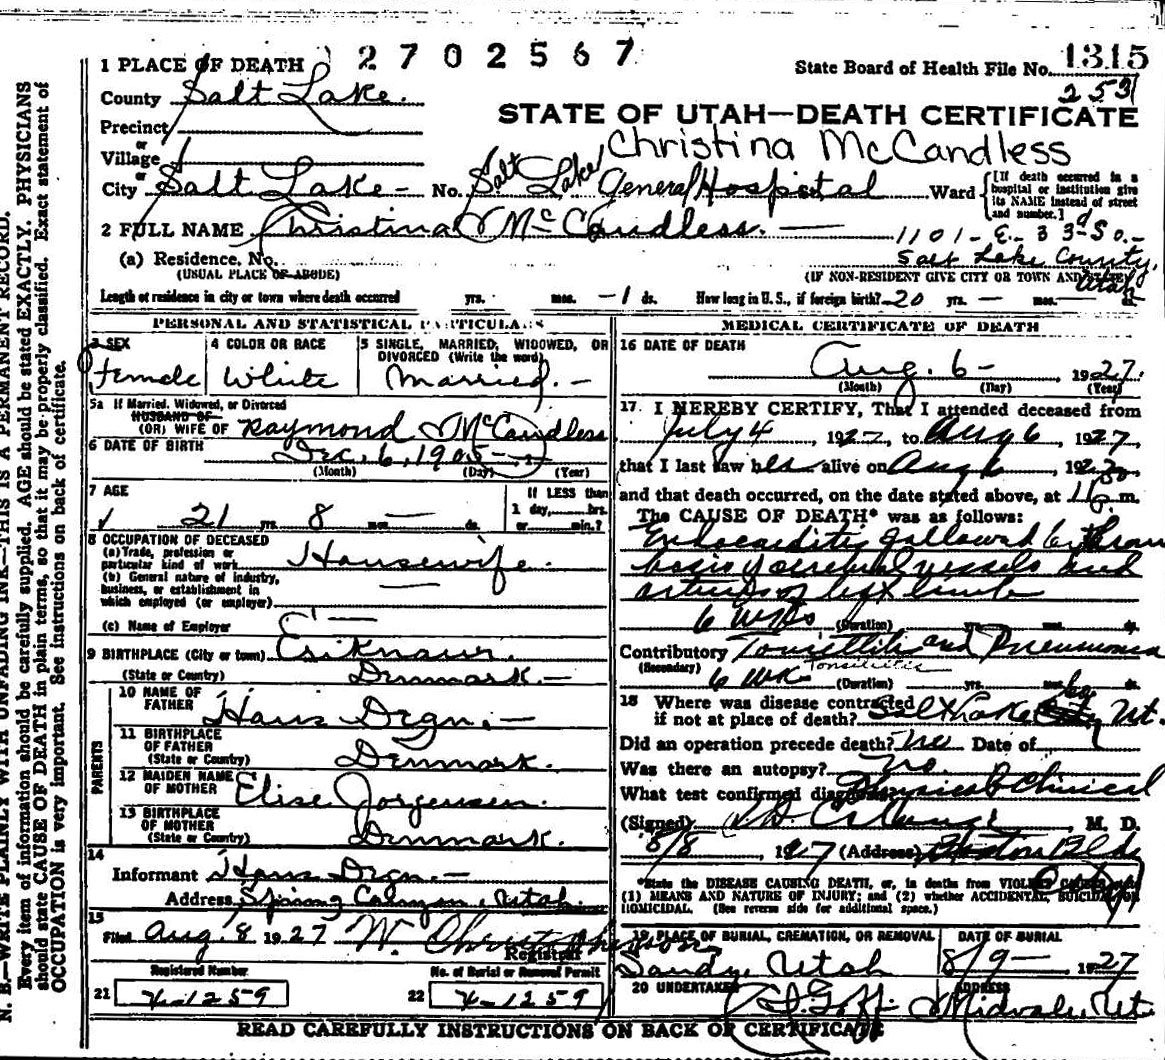 2702567
1 PLACE OF DEATH
State Board of Health File No. 1315
253
County Salt Lake.
STATE OF UTAH—DEATH CERTIFICATE
Precinct
or
Village
Christina McCandless
or
City Salt Lake — No. Salt Lake General Hospital St. Ward
[If death occurred in a hospital or institution give its NAME instead of street and number.]
2 FULL NAME Christina McCandless. —
1101 - E - 33d So. -
(a) Residence. No.
Salt Lake County,
Utah
(USUAL PLACE OF ABODE)
(IF NON-RESIDENT GIVE CITY OR TOWN AND STATE)
Length of residence in city or town where death occurred yrs. mos. — 1 ds. How long in U. S., if foreign birth? 20 yrs. — mos. ds.
PERSONAL AND STATISTICAL PARTICULARS
3 SEX
Female
4 COLOR OR RACE
White
5 SINGLE, MARRIED, WIDOWED, OR DIVORCED (Write the word)
Married. —
5a If Married, Widowed, or Divorced
HUSBAND OF
(OR) WIFE OF Raymond McCandless
6 DATE OF BIRTH Dec. 6, 1905
(Month) (Day) (Year)
7 AGE
21 yrs. 8 mos. — ds.
If LESS than
1 day, hrs.
or min.?
8 OCCUPATION OF DECEASED
(a) Trade, profession or
particular kind of work Housewife.
(b) General nature of industry,
business, or establishment in
which employed (or employer)
(c) Name of Employer
9 BIRTHPLACE (City or town)
(State or Country) Denmark. —
PARENTS
10 NAME OF
FATHER Hans Drgn. —
11 BIRTHPLACE
OF FATHER
(State or Country) Denmark.
12 MAIDEN NAME
OF MOTHER Elise Jorgensen.
13 BIRTHPLACE
OF MOTHER
(State or Country) Denmark.
14
Informant Hans Drgn. —
Address Spring Utah.
15
Filed Aug. 8 1927 W. Christopherson
Registrar
Registered Number
No. of Burial or Removal Permit
21 1259
22 1259
MEDICAL CERTIFICATE OF DEATH
16 DATE OF DEATH
Aug. 6 — , 1927.
(Month) (Day) (Year)
17 I HEREBY CERTIFY, That I attended deceased from
July 4, 1927, to Aug 6, 1927,
that I last saw her alive on Aug 6, 1927
and that death occurred, on the date stated above, at 11 p. m.
The CAUSE OF DEATH* was as follows:
Endocarditis followed by throm
bosis of cerebral vessels and
arteries of left limb
6 wks (Duration) yrs. mos. ds.
Contributory Tonsillitis and Pneumonia
(Secondary) 6 wks Tonsilitis (Duration) yrs. mos. ds.
18 Where was disease contracted
if not at place of death? Salt Lake Ut.
Did an operation precede death? No Date of
Was there an autopsy? No
What test confirmed diagnosis? Physical & Clinical
(Signed) M. D.
8/8 1927 (Address) Boston Bldg
*State the DISEASE CAUSING DEATH, or, in deaths from VIOLENT CAUSES, state
(1) MEANS AND NATURE OF INJURY; and (2) whether ACCIDENTAL, SUICIDAL, OR
HOMICIDAL. (See reverse side for additional space.)
19 PLACE OF BURIAL, CREMATION, OR REMOVAL
Sandy, Utah
DATE OF BURIAL
8/9 — 1927
20 UNDERTAKER
Goff
ADDRESS
Midvale, Ut.
READ CAREFULLY INSTRUCTIONS ON BACK OF CERTIFICATE
N. B.—WRITE PLAINLY WITH UNFADING INK—THIS IS A PERMANENT RECORD.
Every item of information should be carefully supplied. AGE should be stated EXACTLY. PHYSICIANS
should state CAUSE OF DEATH in plain terms, so that it may be properly classified. Exact statement of
OCCUPATION is very important. See instructions on back of certificate.